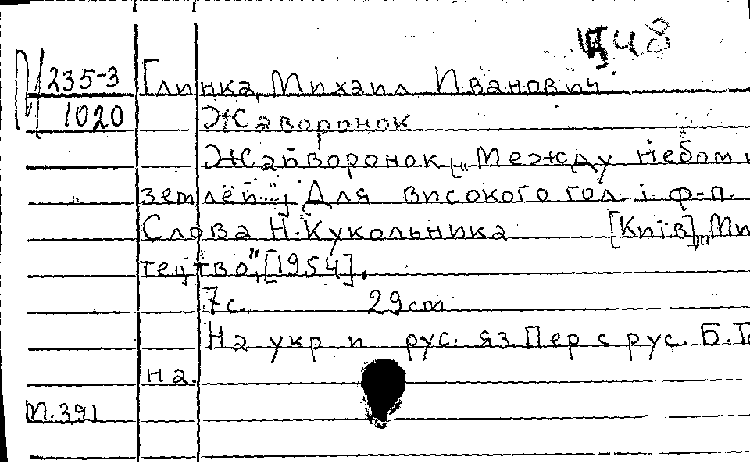 Ц48
235-3 Глинка, Михаил Иванович.
1020 Жаворонок
Жайворонок („Между небом и
землей..."). Для високого гол. і ф-п.
Слова Н. Кукольника [Київ] „Мис
тецтво", [1954].
7 с. 29 cm
На укр и рус. яз. Пер с рус. Б.
на.
П. 391